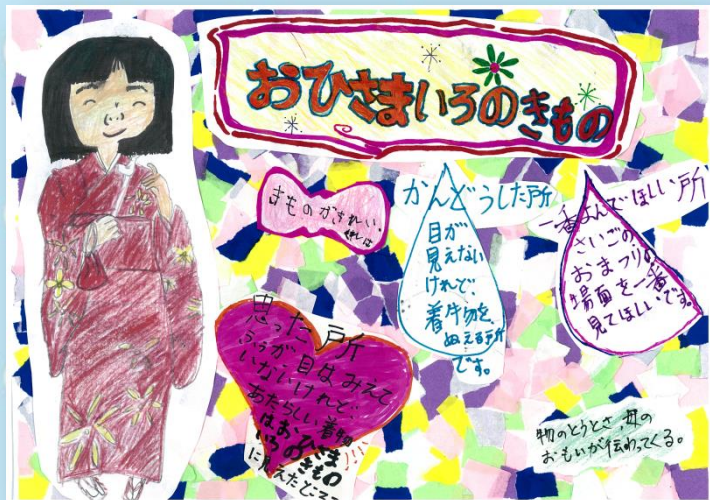 おひさまいろのきもの
きものがきれい。
かんどうした所
目が
見えない
けれど、
着物を、
ぬえる所
です。
一番よんでほしい所
さいごの、
おまつりの
場面を一番
見てほしいです。
思った所
ふうが目はみえて
いないけれど、
あたらしい着物
はおひさま
いろのきもの
に見えたところ
物のとうとさ、母の
おもいが伝わってくる。